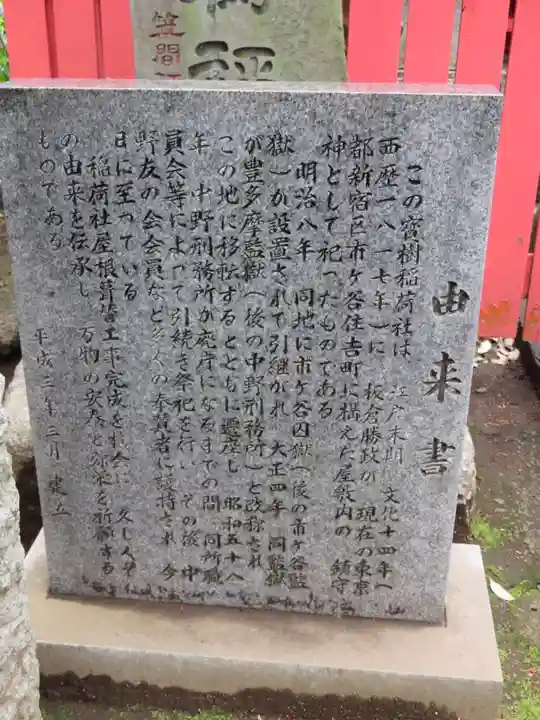 由来書
この寳樹稲荷社は 江戸末期 文化十四年(
西歴一八一七年)に 板倉勝政が 現在の東京
都新宿区市ヶ谷住吉町に構えた屋敷内の 鎮守
神として祀ったものである
明治八年 同地に市ヶ谷囚獄(後の市ヶ谷監
獄)が設置されて引継がれ 大正四年 同監獄
が豊多摩監獄(後の中野刑務所)と改称され
この地に移転するとともに遷座し 昭和五十八
年 中野刑務所が廃庁になるまでの間 同所職
員会等によって引続き祭祀を行い その後 中
野友の会会員など多くの奉賛者に護持され 今
日に至っている
稲荷社屋根葺替工事完成を機会に 久しくそ
の由来を伝承し 万物の安泰と弥栄を祈願する
ものである
平成三年二月 建立
笠間